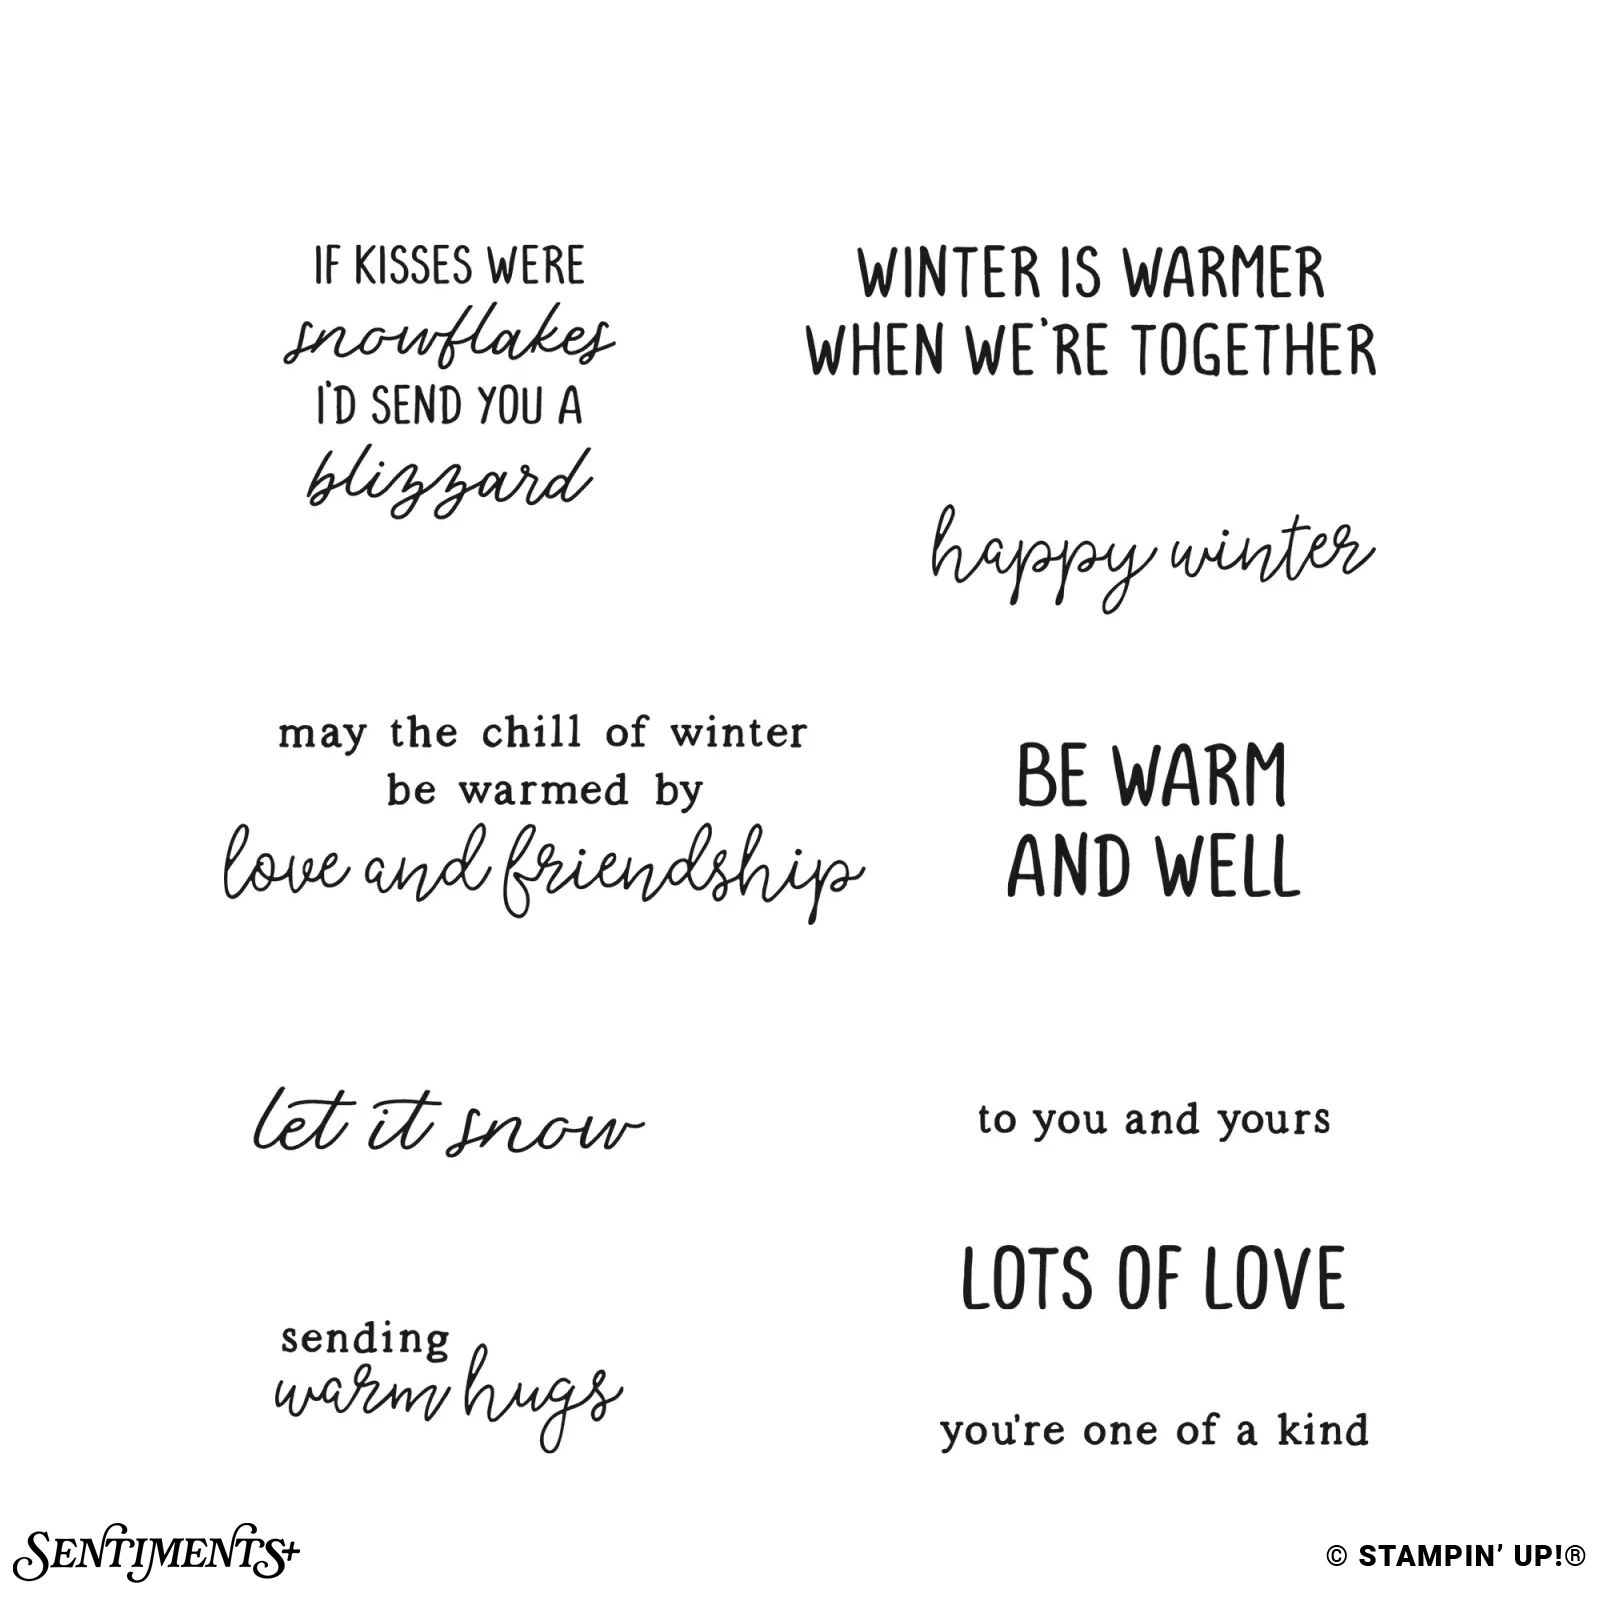 IF KISSES WERE
snowflakes
I'D SEND YOU A
blizzard
WINTER IS WARMER
WHEN WE'RE TOGETHER
happy winter
may the chill of winter
be warmed by
love and friendship
BE WARM
AND WELL
let it snow
to you and yours
LOTS OF LOVE
sending
warm hugs
you're one of a kind
SENTIMENTS+
© STAMPIN' UP!®